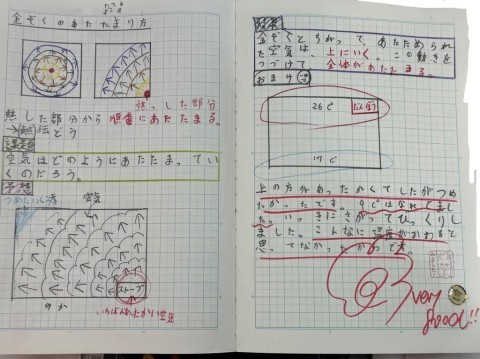 金ぞくのあたたまり方
熱した部分
熱した部分から順番にあたたまる。
→熱伝どう
課題
空気はどのようにあたたまっていくのだろう。
予想
つめたい空気
空気
ストーブ
ゆか
いちばんあったかい空気
結果
金ぞくとちがってあたためられ
た空気は、上にいく。この動きを
つづけて全体があたたまる。
おまけ
26℃
だんぼう
17℃
上の方があったかくてしたがつめ
たかったです。9℃はなれてまし
た。いっきにさがってびっくりし
ました。こんなに温度がかわると
思ってなかったからです。
very
good!!